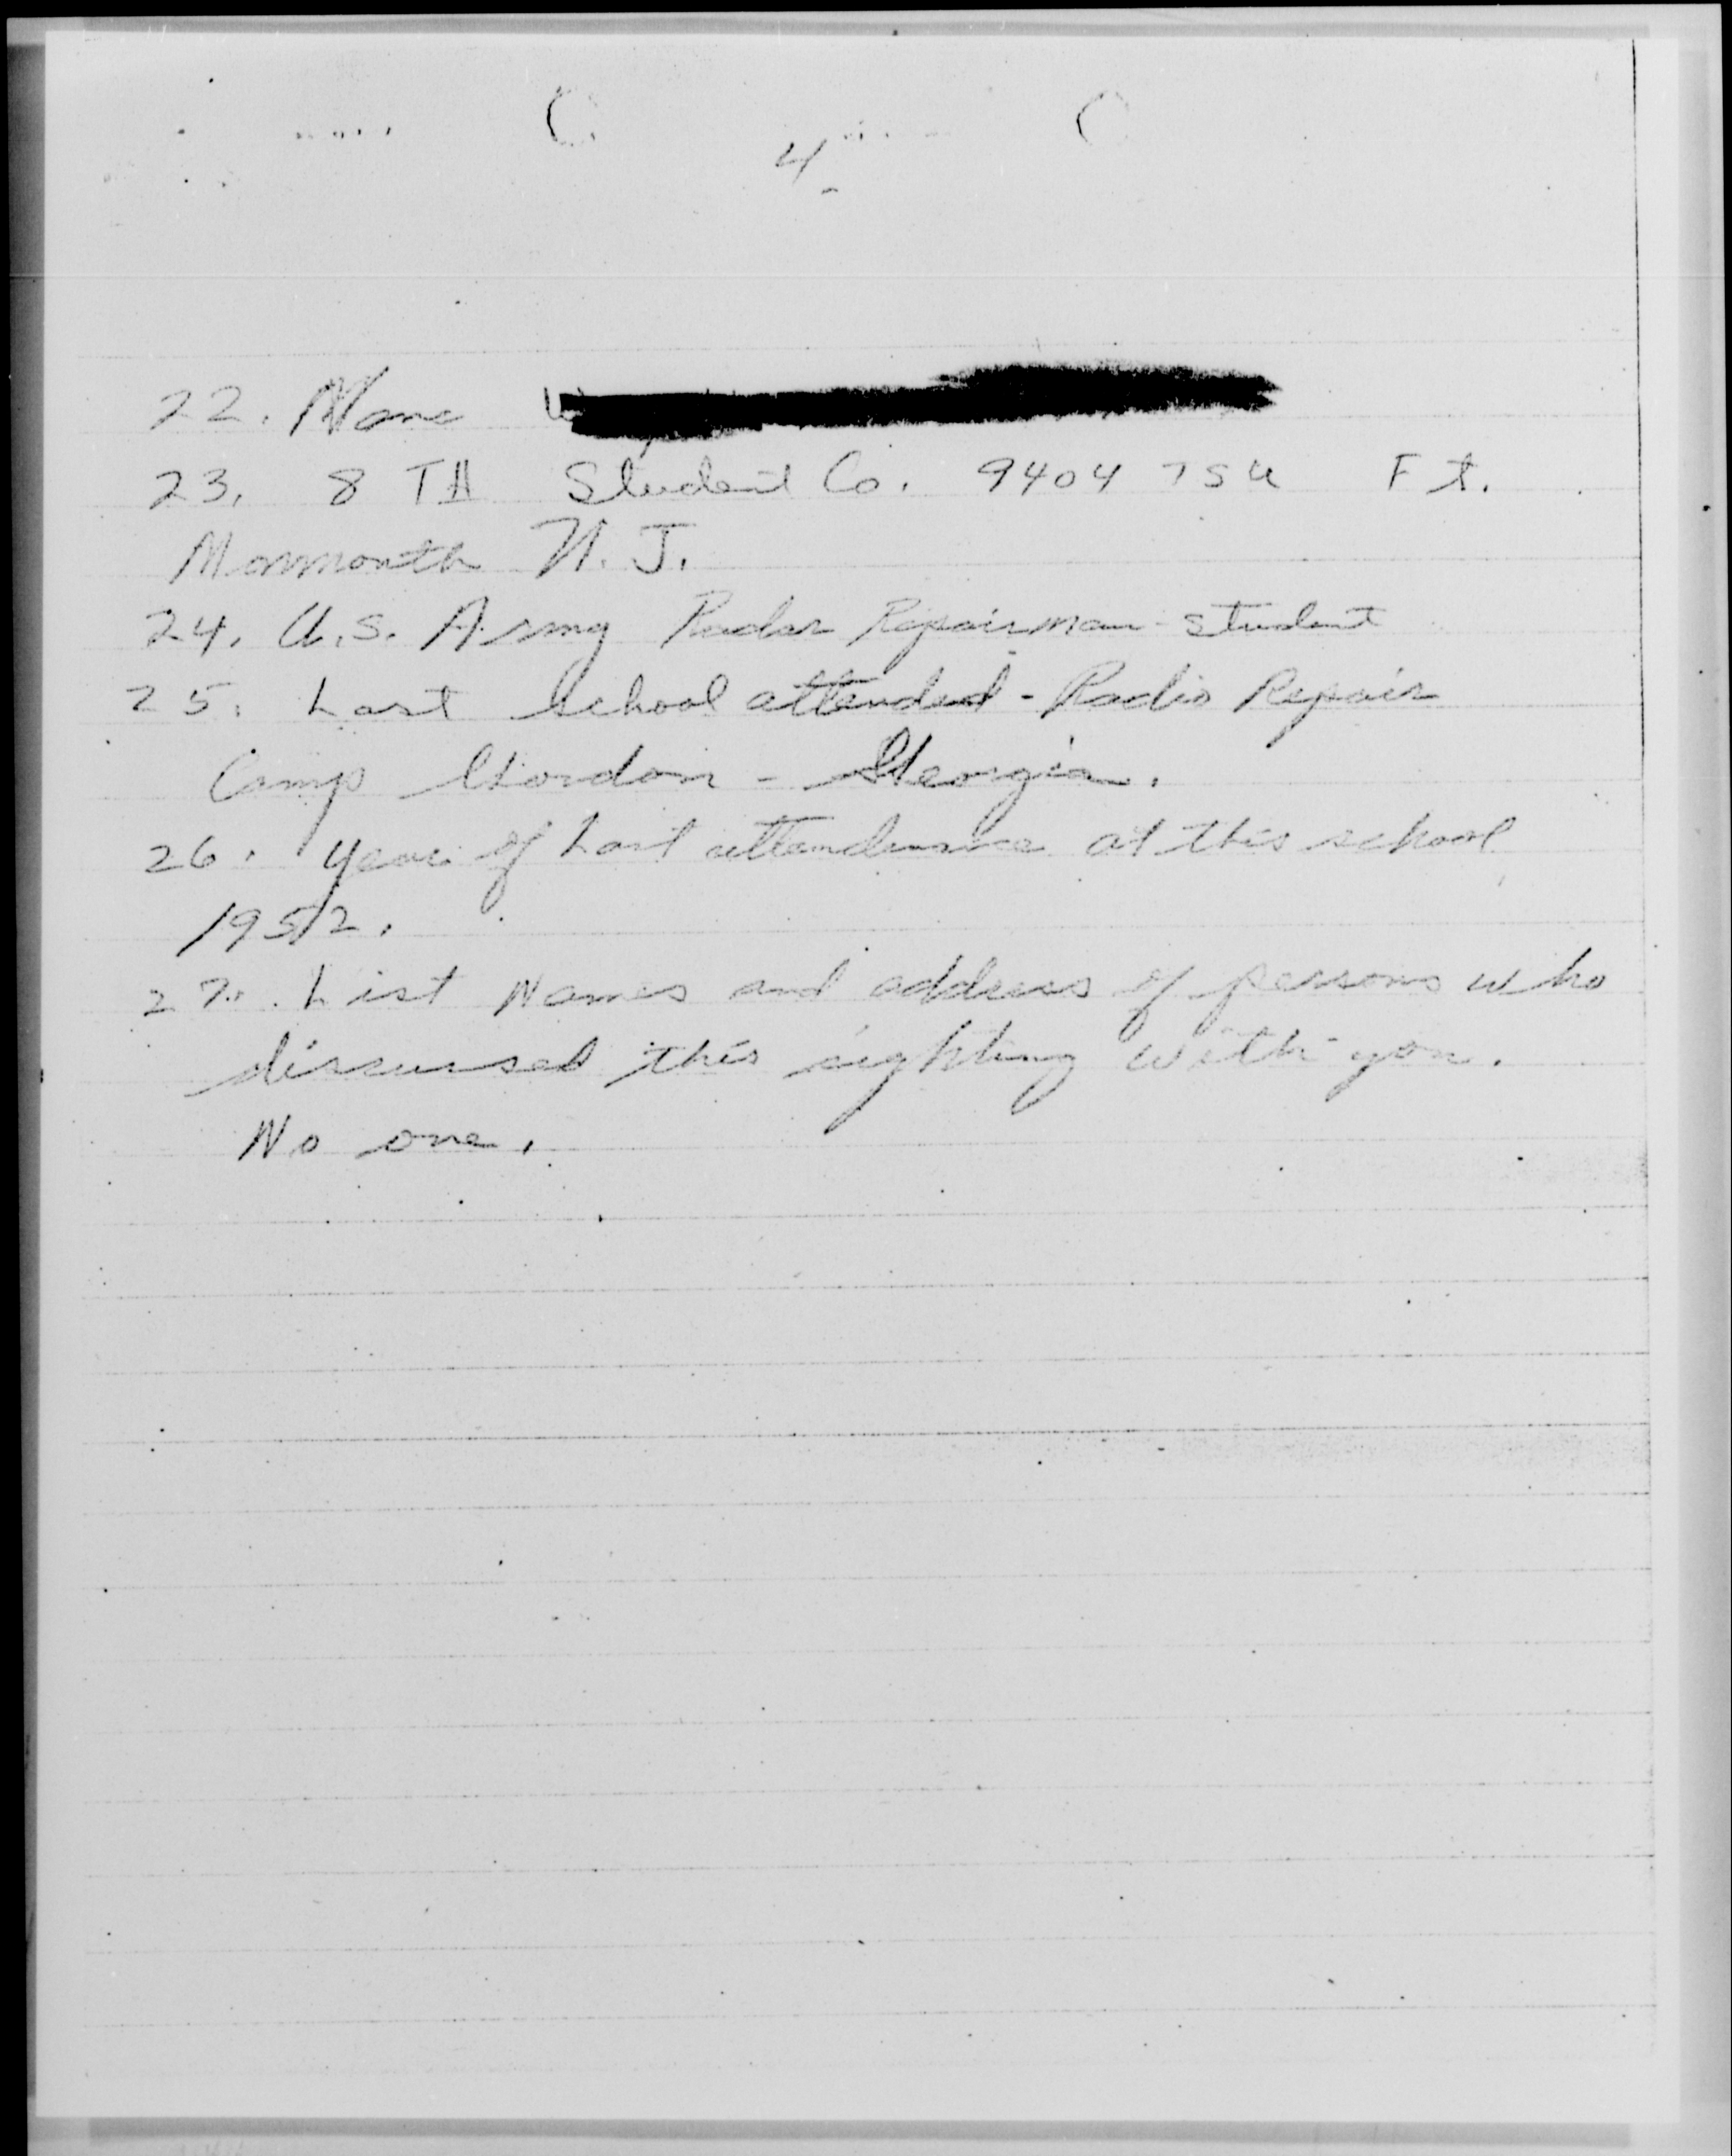 4
22. Name
23. 8 TH Student Co. 9404 TSU Ft.
Monmouth N.J.
24. U.S. Army Radar Repairman - Student
25. Last School attended - Radio Repair
Camp Gordon - Georgia.
26. Year of Last attendance at this school
1952.
27. List Names and address of persons who
discussed this sighting with you.
No one.